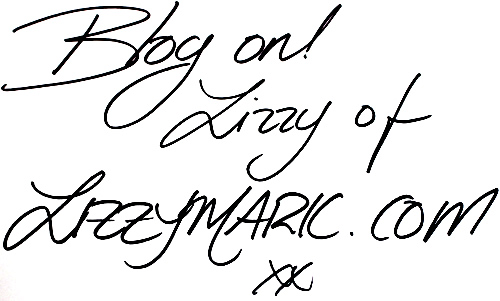 Blog on!
Lizzy of
LIZZYMARIC.COM
xx